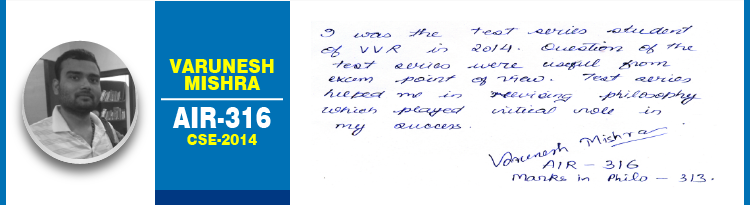 VARUNESH
MISHRA
AIR-316
CSE-2014
I was the test series student
of VVR in 2014. Question of the
test series were useful from
exam point of view. Test series
helped me in revising philosophy
which played critical role in
my success.
Varunesh Mishra
AIR - 316
Marks in Philo - 313.